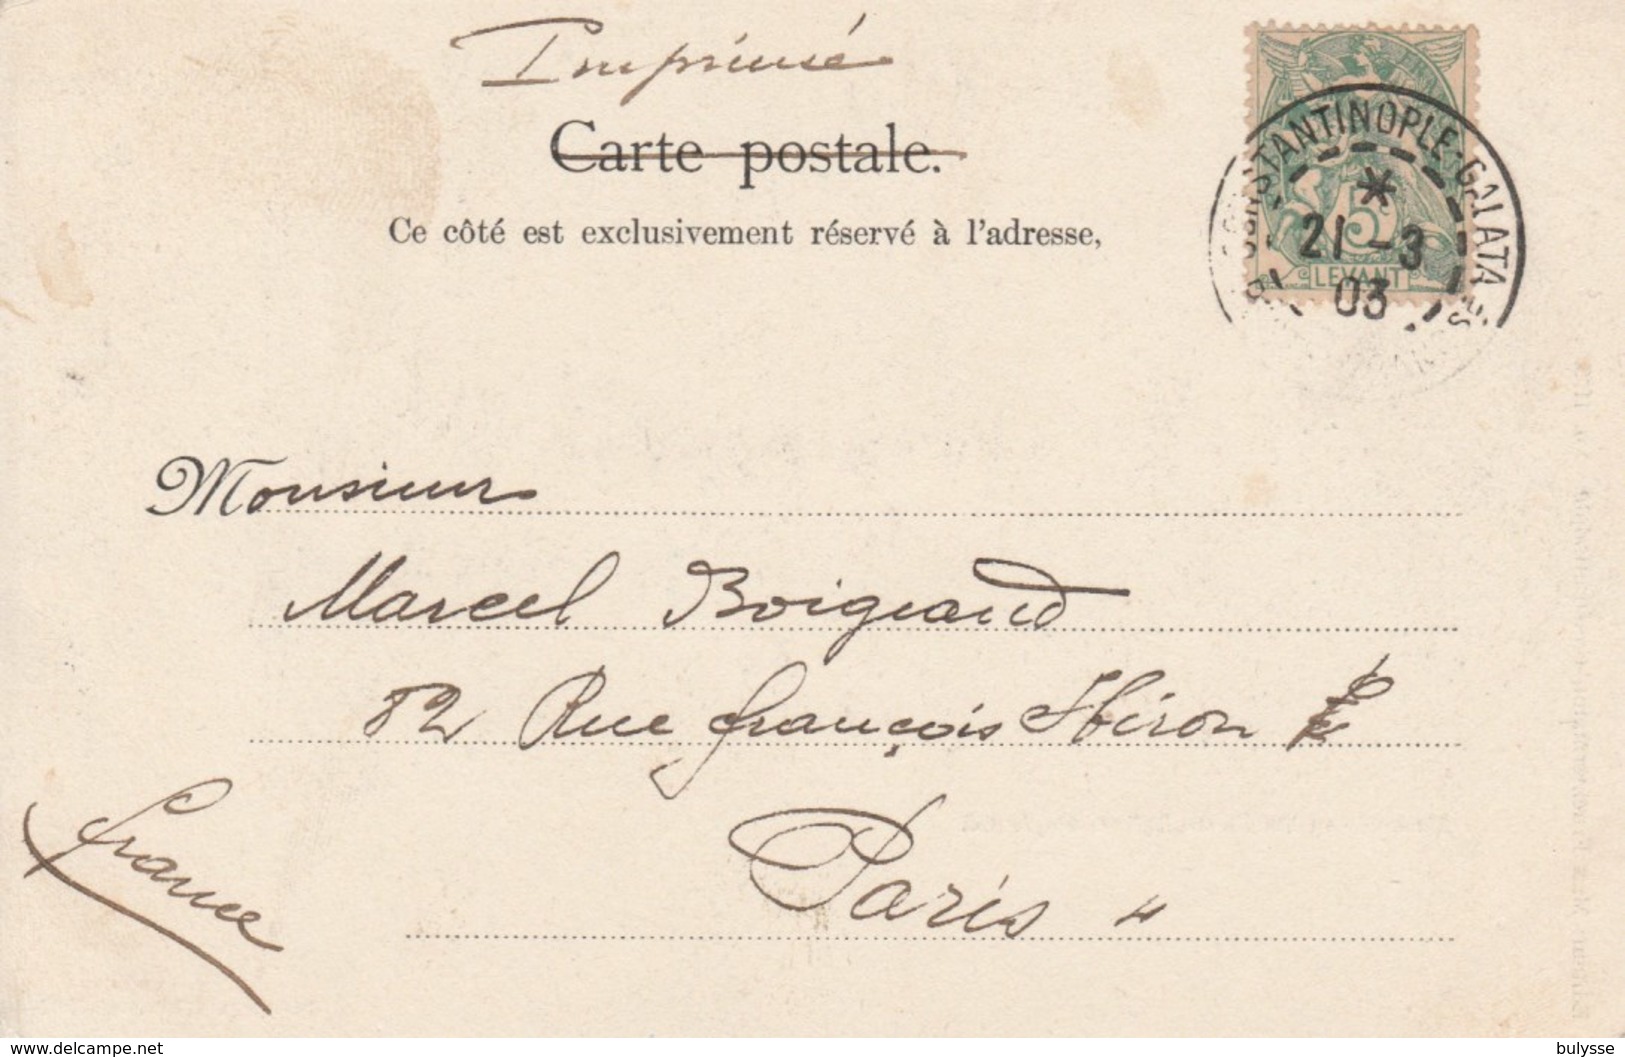 Imprimé
Carte postale.
Ce côté est exclusivement réservé à l'adresse,
CONSTANTINOPLE-GALATA
21 -3
03
5
LEVANT
Monsieur
Marcel Boigeaud
82 Rue François Miron
Paris
France
www.delcampe.net
bulysse